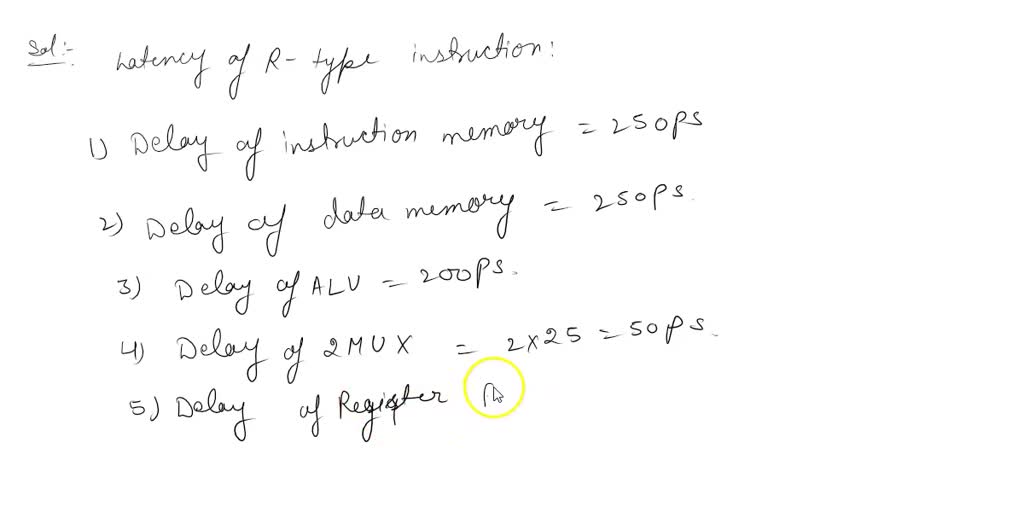 Sol:- Latency of R-type instruction:
1) Delay of instruction memory = 250ps
2) Delay of data memory = 250ps.
3) Delay of ALU = 200ps.
4) Delay of 2MUX = 2x25 = 50ps.
5) Delay of Register